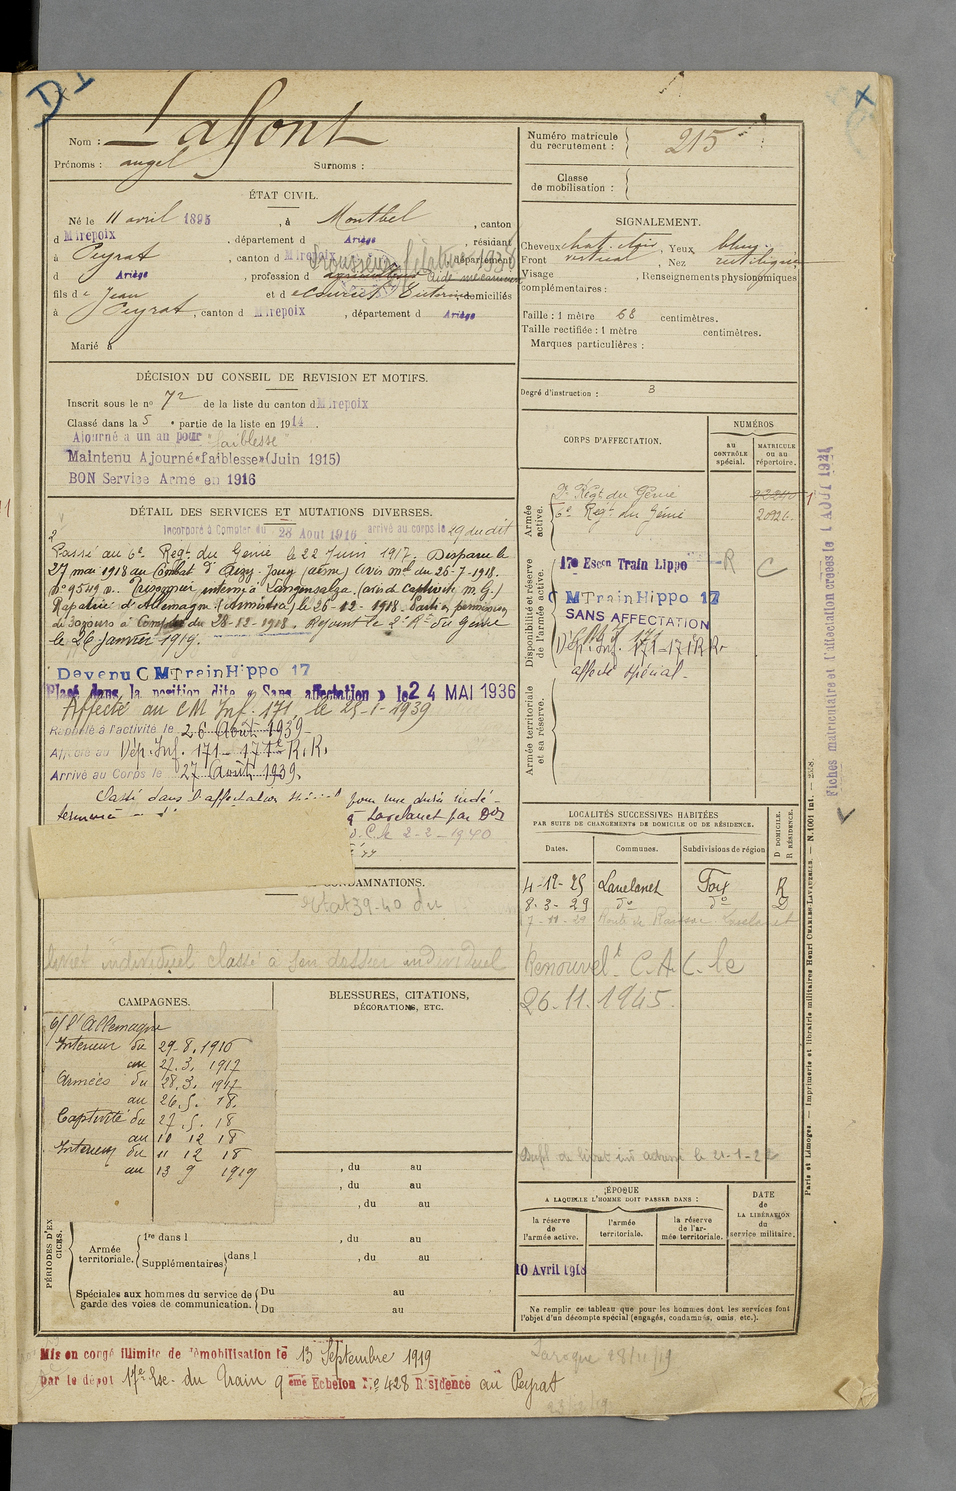 D1
Nom : Laffont
Prénoms : angel Surnoms :
ÉTAT CIVIL.
Né le 11 avril 1895, à Montbel, canton
d Mirepoix, département d Ariège, résidant
à Peyrat, canton d Mirepoix département
d Ariège, profession d
fils d e Jean et d e domiciliés
à Peyrat, canton d Mirepoix, département d Ariège
Marié à
DÉCISION DU CONSEIL DE REVISION ET MOTIFS.
Inscrit sous le no 72 de la liste du canton d Mirepoix
Classé dans la 5 e partie de la liste en 1914.
Ajourné a un an pour "faiblesse"
Maintenu Ajourné«faiblesse»(Juin 1915)
BON Service Arme en 1916
DÉTAIL DES SERVICES ET MUTATIONS DIVERSES.
Incorporé à Compter du 28 Aout 1916 arrivé au corps le 29 du dit
Passé au 6e Régt. du Génie le 22 Juin 1917. Disparu le
27 mai 1918 au Combat d' (aisne) Avis mel du 26-7-1918.
Prisonnier interné à Langensalza. (avis d. captivité m.G.)
Rapatrié d'Allemagne (Armistice) le 26-12-1918. Parti en permission
de 30 jours à Compter du 28-12-1918. Rejoint le 2e Rt du Génie
le 26 janvier 1919.
Devenu C M Train Hippo 17
Placé dans la position dite « Sans affectation » le 24 MAI 1936
Affecté au CM Inf. 171 le 25-1-1939
Rappelé à l'activité le 26 Août 1939
Affecté au Dép. Inf. 171 - 171e R.R.
Arrivé au Corps le 27 Août 1939.
Classé dans l'affectation pour une durée indé-
à Lavelanet par
C. le 2-2-1940
CONDAMNATIONS.
39-40 du
livret individuel classé à son dossier individuel
CAMPAGNES.
C/ l'Allemagne
Intérieur du 29-8.1916
au 27.3.1917
Armées du 28.3.1917
au 26.5.18.
Captivité du 27.5.18
au 10 12 18
Intérieur du 11 12 18
au 13 9 1919
BLESSURES, CITATIONS,
DÉCORATIONS, ETC.
, du au
, du au
, du au
PÉRIODES D'EX
CICES.
Armée
territoriale.
1re dans l , du au
Supplémentaires dans l , du au
Spéciales aux hommes du service de
garde des voies de communication.
Du au
Du au
Mis en congé illimité de démobilisation le 13 Septembre 1919
par le dépôt 17e Esc. du Train 9 eme Echelon No 428 Résidence au Peyrat
Numéro matricule
du recrutement : 215
Classe
de mobilisation :
SIGNALEMENT.
Cheveux chat. clair, Yeux bleus
Front vertical, Nez rectiligne
Visage , Renseignements physionomiques
complémentaires :
Taille : 1 mètre 68 centimètres.
Taille rectifiée : 1 mètre centimètres.
Marques particulières :
Degré d'instruction : 3
CORPS D'AFFECTATION.
NUMÉROS
au
CONTRÔLE
spécial.
MATRICULE
ou au
répertoire.
Armée
active.
2e Régt du Génie
6e Régt du Génie 20926
Disponibilité et réserve
de l'armée active.
17e Escon Train Hippo R C
C M Train Hippo 17
SANS AFFECTATION
Dép. Inf. 171-171e RR
affecté spécial.
Armée territoriale
et sa réserve.
LOCALITÉS SUCCESSIVES HABITÉES
PAR SUITE DE CHANGEMENTS DE DOMICILE OU DE RÉSIDENCE.
Dates. Communes. Subdivisions de région
D DOMICILE.
R RÉSIDENCE.
4-12-25 Lavelanet Foix R
8-3-29 do do D
Renouvelt C.A.C. le
26.11.1945.
ÉPOQUE
A LAQUELLE L'HOMME DOIT PASSER DANS :
la réserve
de
l'armée active.
l'armée
territoriale.
la réserve
de l'ar-
mée territoriale.
DATE
de
LA LIBÉRATION
du
service militaire.
10 Avril 1918
Ne remplir ce tableau que pour les hommes dont les services font
l'objet d'un décompte spécial (engagés, condamnés, omis, etc.).
Laroque 28/12/19
Fiches matriculaire et d'affectation créées le 1 AOUT 1921
Paris et Limoges. — Imprimerie et librairie militaires Henri CHARLES-LAVAUZELLE. — N. 1001 Int.